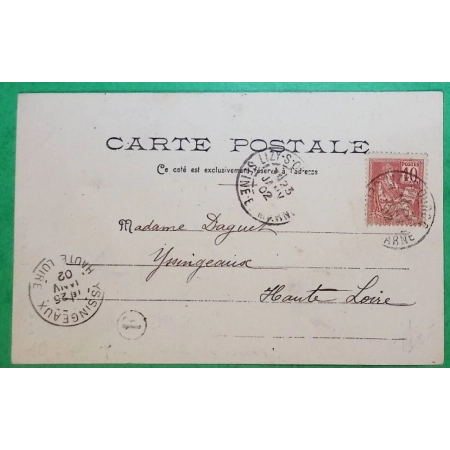 CARTE POSTALE
Ce côté est exclusivement réservé à l'adresse
LIZY-S-
23
JANV
02
SEINE-
MARNE
POSTES
10
ARNE
Madame Daguet
Yssingeaux
Haute Loire
YSSINGEAUX
25
JANV
02
HAUTE LOIRE